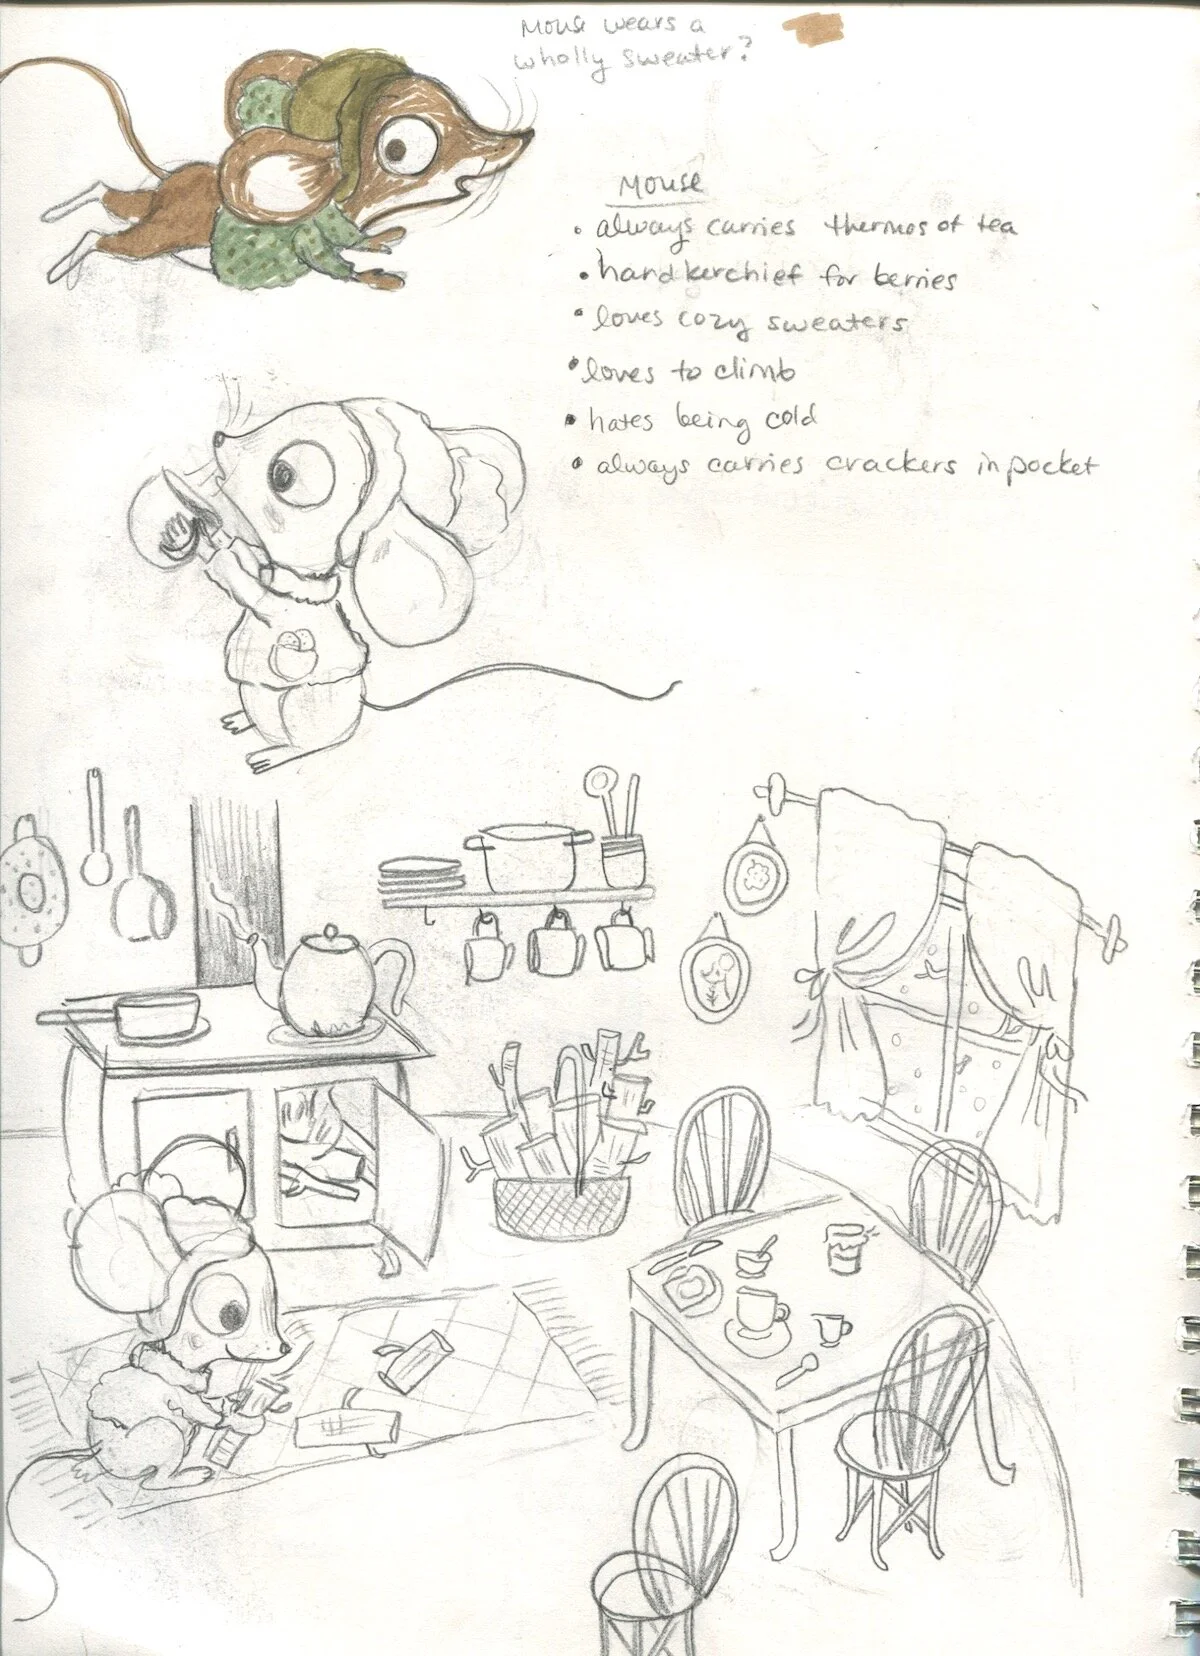 Mouse wears a
wholly sweater?
Mouse
• always carries thermos of tea
• handkerchief for berries
• loves cozy sweaters
• loves to climb
• hates being cold
• always carries crackers in pocket